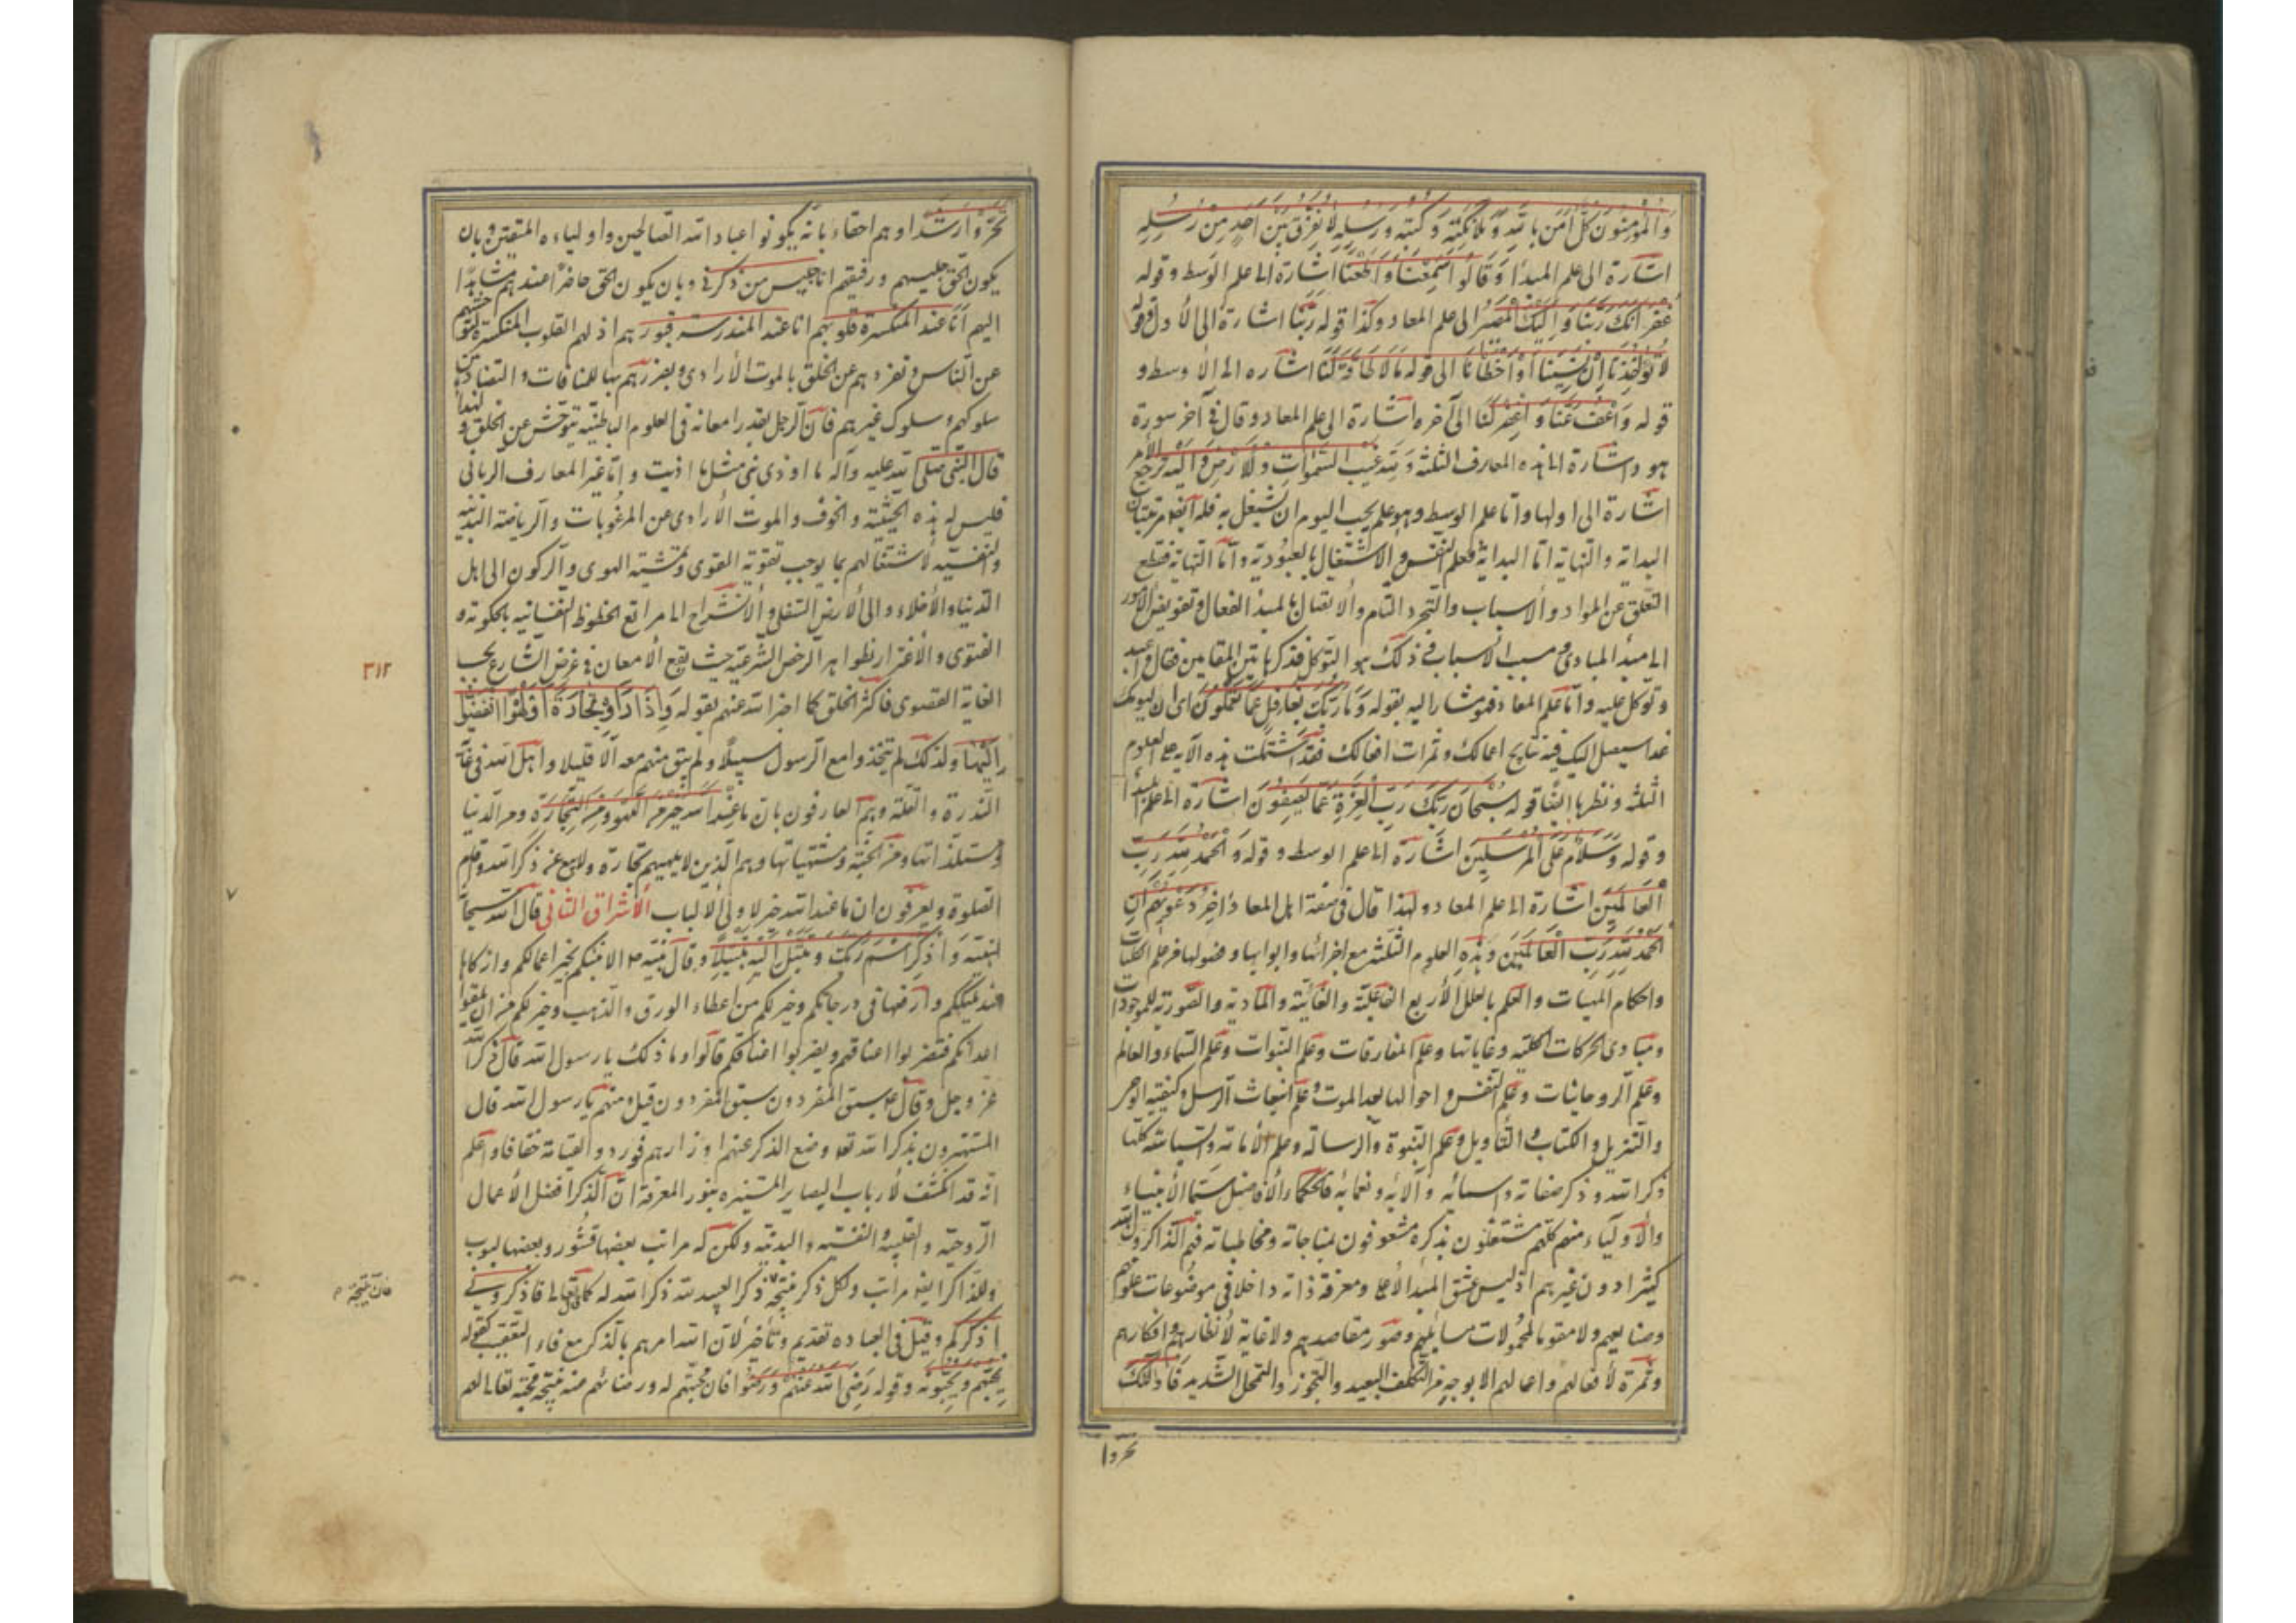 وَالْمُؤْمِنُونَ كُلٌّ آمَنَ بِاللَّهِ وَمَلَائِكَتِهِ وَكُتُبِهِ وَرُسُلِهِ لَا نُفَرِّقُ بَيْنَ أَحَدٍ مِنْ رُسُلِهِ
اشارة الى علم المبدأ وَقَالُوا سَمِعْنَا وَأَطَعْنَا اشارة الى علم الوسط وقوله
غُفْرَانَكَ رَبَّنَا وَإِلَيْكَ الْمَصِيرُ الى علم المعاد وكذا قوله رَبَّنَا اشارة الى الأول وقوله
لَا تُؤَاخِذْنَا إِنْ نَسِينَا أَوْ أَخْطَأْنَا الى قوله مَا لَا طَاقَةَ لَنَا اشاره الى الاوسط و
قوله وَاعْفُ عَنَّا وَاغْفِرْ لَنَا الى آخره اشارة الى علم المعاد وقال في آخر سورة
هود اشارة الى هذه المعارف الثلثة وَلِلَّهِ غَيْبُ السَّمٰوَاتِ وَالْأَرْضِ وَإِلَيْهِ يُرْجَعُ الأمر
اشارة الى اولها واما علم الوسط وهو علم يجب اليوم ان يشتغل به فله ايضا مرتبتان
البداية والنهاية اما البداية فعلم النفس والاشتغال بالعبودية واما النهاية فقطع
التعلق عن المواد والاسباب والتجرد التام والاتصال بالمبدأ الفعال وتفويض الأمور
الى مبدأ المبادي ومسبب الاسباب في ذلك هو التوكل فذكر هاتين المقامين فقال فاعبده
وتوكل عليه واما علم المعاد فهو مشار اليه بقوله وَمَا رَبُّكَ بِغَافِلٍ عَمَّا تَعْمَلُونَ اى ان ليومك
غدا سيصل اليك فيه نتايج اعمالك وثمرات افعالك فقد اشتملت هذه الآية على العلوم
الثلثة ونظيرها ايضا قوله سُبْحَانَ رَبِّكَ رَبِّ الْعِزَّةِ عَمَّا يَصِفُونَ اشارة الى علم المبدأ
وقوله وَسَلَامٌ عَلَى الْمُرْسَلِينَ اشارة الى علم الوسط وقوله وَالْحَمْدُ لِلَّهِ رَبِّ
الْعَالَمِينَ اشارة الى علم المعاد ولهذا قال في صفة اهل المعاد وَآخِرُ دَعْوَاهُمْ أَنِ
الْحَمْدُ لِلَّهِ رَبِّ الْعَالَمِينَ وهذه العلوم الثلثة مع اجزائها وابوابها وفصولها من علم الكليات
واحكام المهيات والعلم بالعلل الأربع الفاعلية والغائية والمادية والصورية للموجودات
ومبادى الحركات الكلية وغاياتها وعلم المفارقات وعلم النبوات وعلم السماء والعالم
وعلم الروحانيات وعلم النفس واحوالها بعد الموت وعلم انبعاث الرسل وكيفية الوحي
والتنزيل والكتاب والتأويل وعلم النبوة والرسالة وعلم الأمامة والسياسة كلها
ذكر الله وذكر صفاته واسمائه وآلائه ونعمائه فالحكماء الافاضل سيما الأنبياء
والأولياء منهم كلهم مشتغلون بذكره مشعوفون بمناجاته ومخاطباته فهم الذاكرون الله
كثيرا دون غيرهم اذ ليس عشق المبدأ الأعلى ومعرفة ذاته داخلا في موضوعات علومهم
وصنايعهم ولا مقوما لمحمولات مسايلهم وصور مقاصدهم ولا غاية لأنظارهم وافكارهم
وثمرة لأفعالهم واعمالهم الا بوجه من التكلف البعيد والتجوز والتمحل الشديد فأولئك
تحروا
تَحَرَّوْا رَشَدًا وهم احقاء بأنه يكونوا عباد الله الصالحين واولياءه المتقين وبان
يكون الحق جليسهم ورفيقهم انا جليس من ذكرني وبان يكون الحق حاضرا عندهم مشاهدا
اليهم انا عند المنكسرة قلوبهم انا عند المندرسة قبورهم اذ لهم القلوب المنكسرة
عن الناس وتفردهم عن الخلق بالموت الأرادى وبعزرهم بها للمنافات والتضاد بين
سلوكهم وسلوك غيرهم فان الرجل بقدر امعانه في العلوم الباطنية يتوحش عن الخلق ولهذا
قال النبي صلى الله عليه وآله ما اوذى نبى مثل ما اذيت واما غير المعارف الربانى
فليس له هذه الحيثية والخوف والموت الأرادى عن المرغوبات والرياضة البدنية
والنفسية لاشتغالهم بما يوجب تقوية القوى وتمشية الهوى والركون الى اهل
الدنيا والأخلاء والى الأرض السفلى والانشراح الى مراتع الحظوظ النفسانية بالحكومة و
الفتوى والأغترار بظواهر الرخص الشرعية حيث يقع الأمعان في غرض الشارع بحسب
الغاية القصوى فاكثر الخلق كما اخبر الله عنهم بقوله وَإِذَا رَأَوْا تِجَارَةً أَوْ لَهْوًا انْفَضُّوا
إِلَيْهَا ولذلك لم تتخذوا مع الرسول سبيلا ولم يبق منهم معه الا قليلا واهل الله في غاية
الندرة والقلة وهم العارفون بان مَا عِنْدَ اللَّهِ خَيْرٌ مِنَ اللَّهْوِ وَمِنَ التِّجَارَةِ ومن الدنيا
ومستلذاتها ومن الجنة ومشتهياتها وهم الذين لا يلهيهم تجارة ولا بيع عن ذكر الله واقام
الصلوة ويعرفون ان ما عند الله خير لاولى الالباب الأشراق الثانى قال الله سبحانه
لنبيه وَاذْكُرِ اسْمَ رَبِّكَ وَتَبَتَّلْ إِلَيْهِ تَبْتِيلًا وقال نبيه ص الا انبئكم بخير اعمالكم وازكاها
عند مليككم وارفعها في درجاتكم وخير لكم من اعطاء الورق والذهب وخير لكم من ان تلقوا
اعدائكم فتضربوا اعناقهم ويضربوا اعناقكم قالوا وما ذلك يا رسول الله قال ذكر الله
عز وجل وقال ع سبق المفردون سبق المفردون قيل ومن هم يا رسول الله قال
المستهترون بذكر الله تعالى وضع الذكر عنهم اوزارهم فوردوا القيامة خفافا واعلم
انه قد انكشف لأرباب البصاير المستنيره بنور المعرفة ان الذكر افضل الأعمال
الروحية والقلبية والنفسية والبدنية ولكن له مراتب بعضها قشور وبعضها لبوب
وللذاكر ايضا مراتب ولكل ذكر نتيجة ذكر العبد لله ذكر الله له كما قال تعالى فاذكرونى
اذكركم وقيل في العباده تقديم وتأخير لان الله امرهم بالذكر مع فاء التعقيب كقوله
يُحِبُّهُمْ وَيُحِبُّونَهُ وقوله رَضِيَ اللَّهُ عَنْهُمْ وَرَضُوا فان محبتهم له ورضائهم عنه نتيجة محبته تعالى لهم
٣١٢
فان نتيجة م